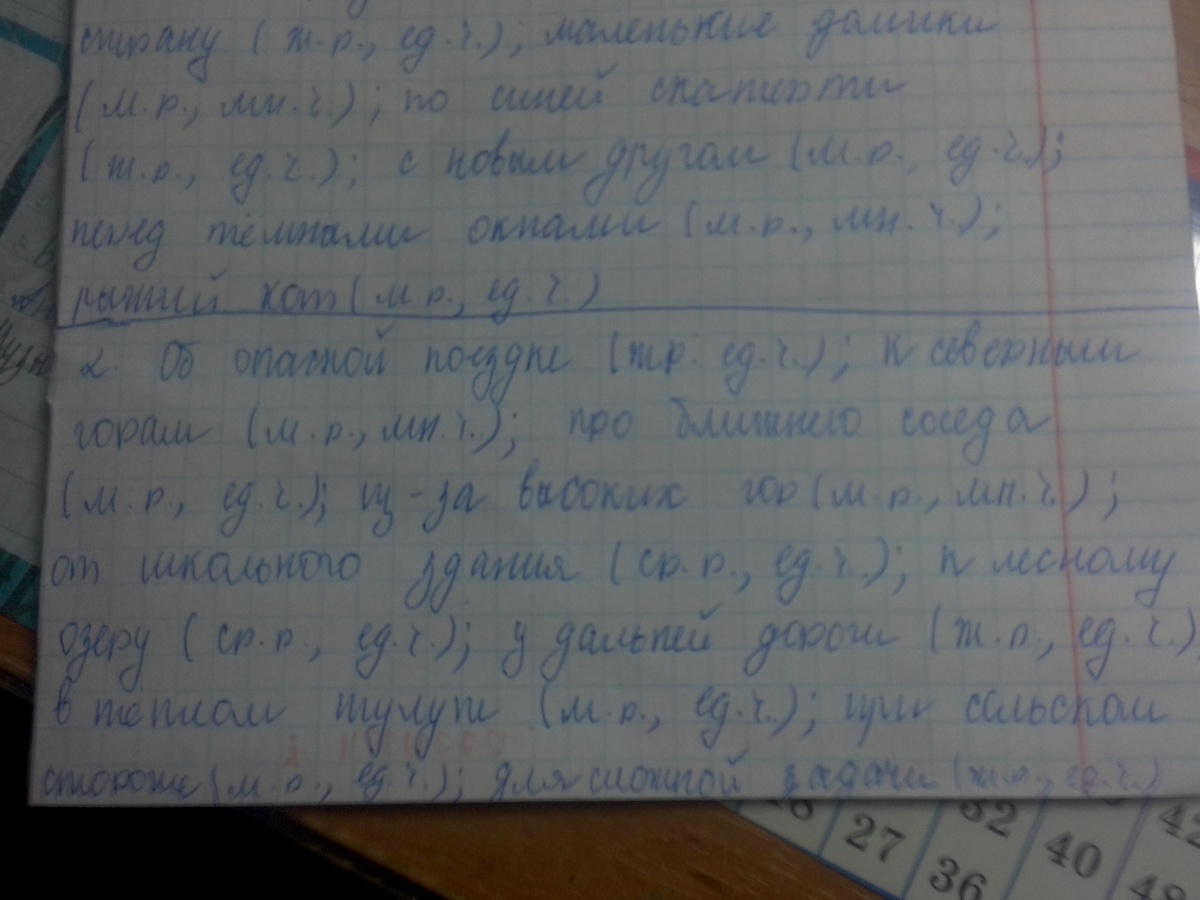 страну (ж.р., ед.ч.); маленькие домики
(м.р., мн.ч.); по синей скатерти
(ж.р., ед.ч.); с новым другом (м.р., ед.ч.);
перед тёмнами окнами (м.р., мн.ч.);
рыжий кот (м.р., ед.ч.)
2. Об опасной поездке (жр. ед.ч.); к северным
горам (м.р., мн.ч.); про ближнего соседа
(м.р., ед.ч.); из-за высоких гор (м.р., мн.ч.);
от школьного здания (ср.р., ед.ч.); к лесному
озеру (ср.р., ед.ч.); у дальней дороги (ж.р., ед.ч.)
в тёплом тулупе (м.р., ед.ч.); при сельском
стороже (м.р., ед.ч.); для сложной задачи (ж.р., ед.ч.)
27
32
40
42
36
48